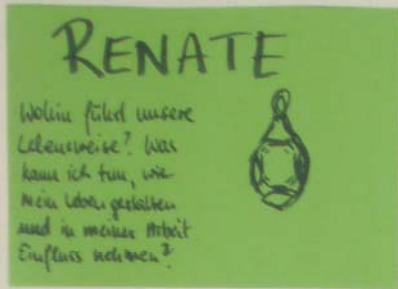 RENATE
Wohin führt unsere
Lebensweise? Was
kann ich tun, wie
mein Leben gestalten
und in meiner Arbeit
Einfluss nehmen?